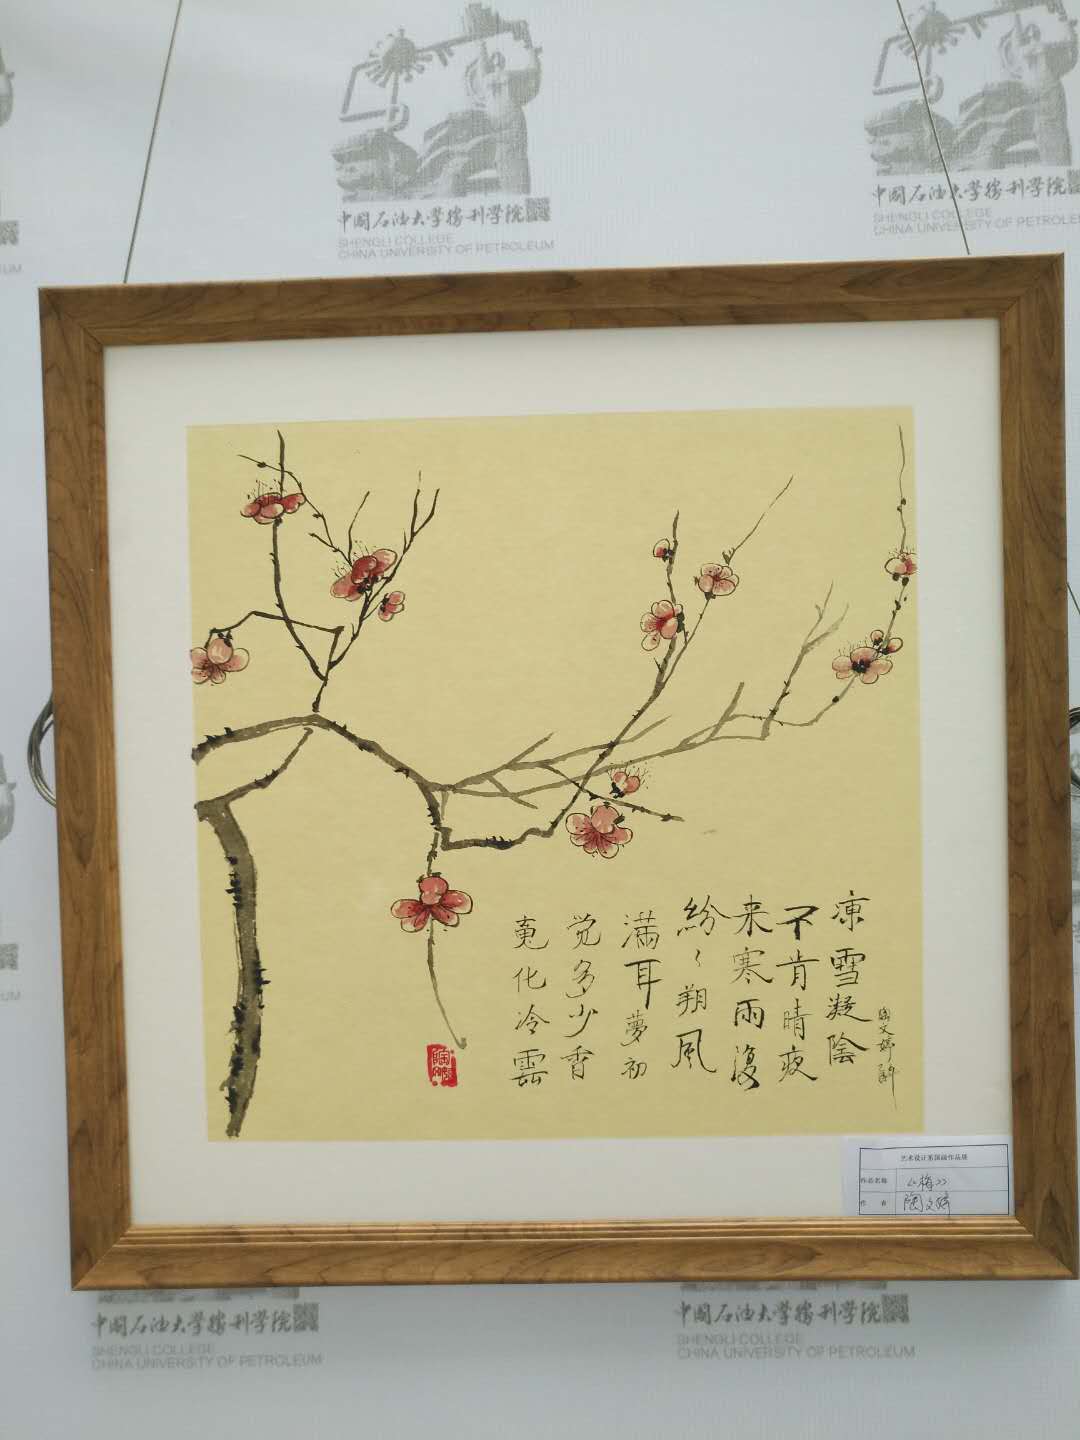 中国石油大学胜利学院
SHENGLI COLLEGE
CHINA UNIVERSITY OF PETROLEUM
中国石油大学胜利学院
SHENGLI COLLEGE
CHINA UNIVERSITY OF PETROLEUM
UM
凍雪凝陰
不肯晴夜
来寒雨復
紛〻朔風
满耳夢初
觉多少香
化冷雲
陶文婷
艺术设计系国画作品展
作品名称 《梅》
作者 陶文婷
UM
中国石油大学胜利学院
SHENGLI COLLEGE
CHINA UNIVERSITY OF PETROLEUM
中国石油大学胜利学院
SHENGLI COLLEGE
CHINA UNIVERSITY OF PETROLEUM